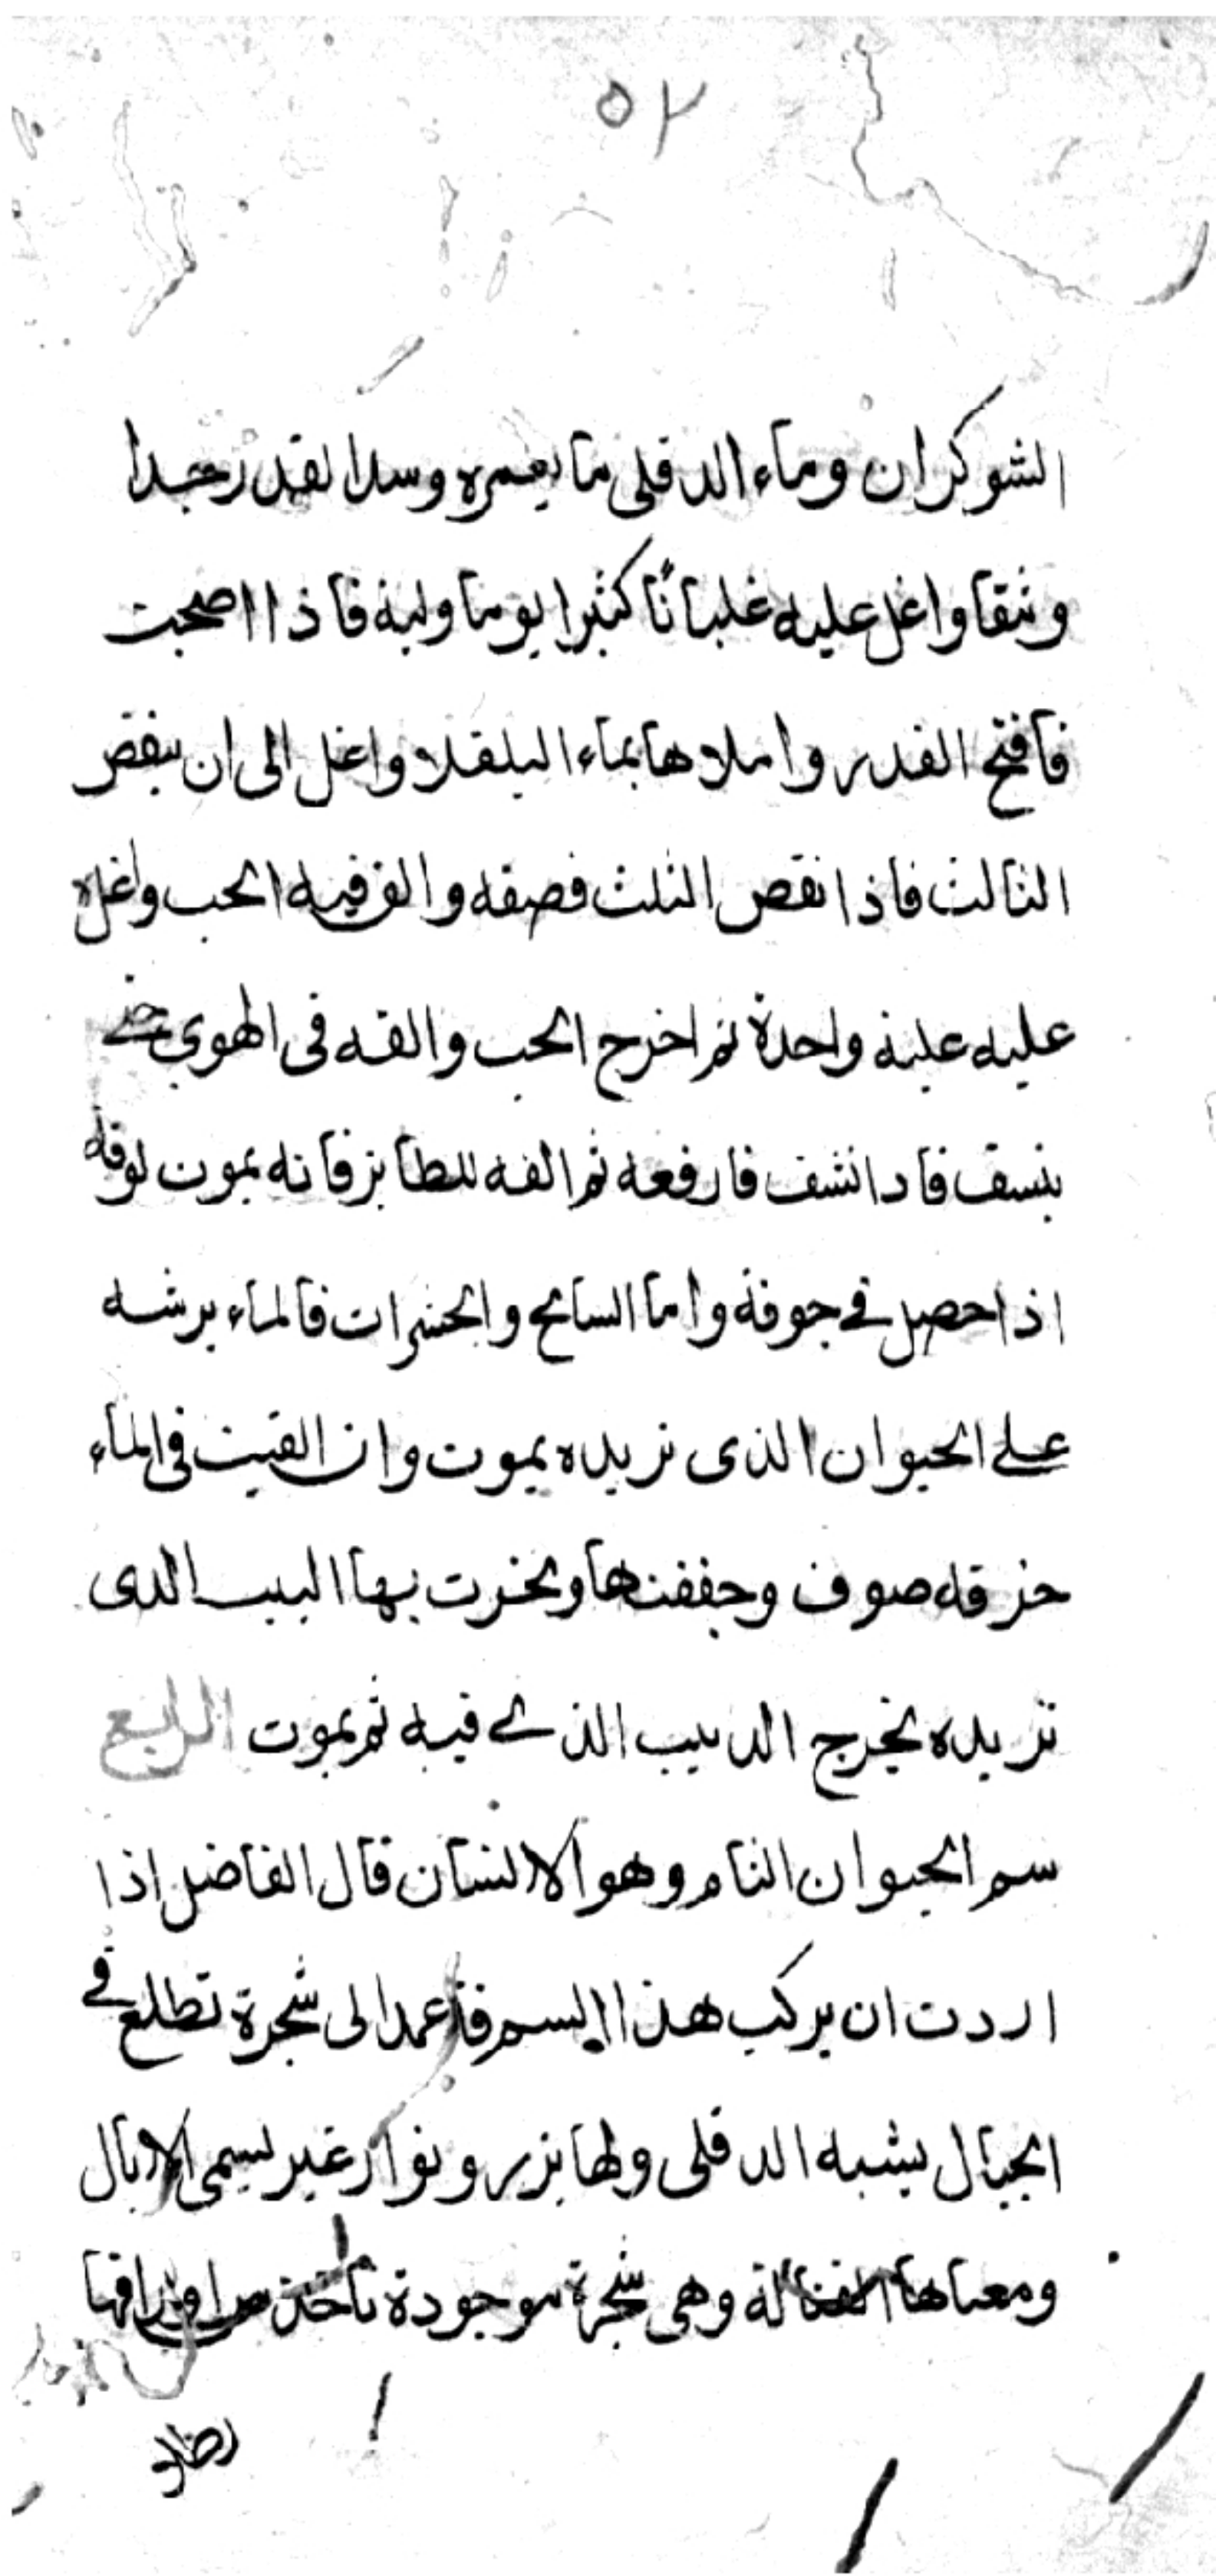 ٥٢
الشوكران وماء الدفلى ما يغمره وسدا لقدر جيدا
وثقا واغل عليه غليانًا كثيرا يوما ولية فاذا اصحبت
فافتح القدر واملاها بماء البلقلا واغل الى ان ينقص
الثالث فاذا نقص الثلث فصفه والق فيه الحب واغله
عليه علية واحدة ثم اخرج الحب والقه فى الهوي حتى
ينسف فادا نشف فارفعه ثم القه للطايز فانه يموت لوقته
اذا حصل في جوفة واما السايح والحشرات فالماء يرشه
على الحيوان الذى تريده يموت وان القيت فى الماء
خرقه صوف وجففتها وبخرت بها البيب الدى
تريده يخرج الدبيب الذى فيه ثم يموت الرابع
سم الحيوان التام وهو الانسان قال الفاضل اذا
اردت ان يركب هذا السم فاعمد الى شجرة تطلع في
الجبال يشبه الدفلى ولها بزر ونوار غير يسمى الابال
ومعناها القتالة وهى شجرة موجودة تأخذ من اوراقها